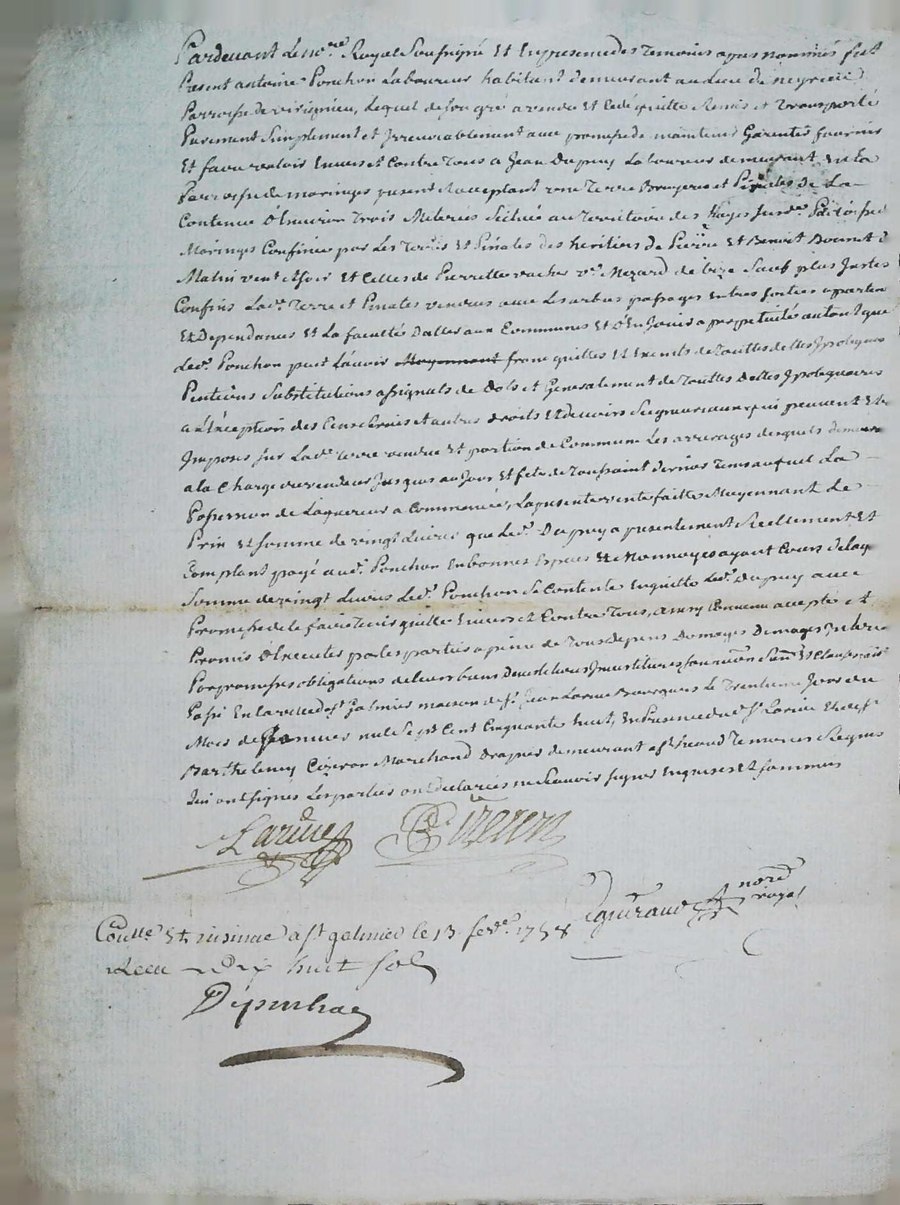 Pardevant Le no.re Royal Soussigné Et En presence des Temoins apres nommés fut
Present antoine Ponchon Laboureur habitant demeurant au Lieu de
Parroisse de virignieu, Lequel de son gré a vendu Et Cedé quitté Remis et Transporté
Purement Simplement et Irrevocablement avec promesse de maintenir Garentir fournir
Et faire valoir Envers et Contre Tous a Jean Dupuy Laboureur demeurant en La
Parroisse de maringes present acceptant une Terre Bruyeres et Pinales de La
Contenue D'Environ Trois Meterés Scituée au Territoire des Susd.e Parroisse
Maringes Confinée par Les Terres Et Pinales des heritiers de Pierre Et Benoit Bonnet de
Matin vent Et soir Et Celles de Pierrette vacher v.e Mezard de bize Sauf plus Justes
Confins La d. Terre et Pinales vendues avec Les arbres passages Entrées sorties appartces
Et Dependances Et La faculté D'aller aux Communes Et D'En Jouir a perpetuité autant que
Led. Ponchon peut L'avoir Moyennant franc quittes Et Exempts de Touttes dettes Ipoteques
Pentions Substitutions assignats de Dots et Generalement de Touttes dettes Ipotequaires
a L'Exception des Cens Servis et autres droits Et devoirs Seigneuriaux qui peuvent Etre
Imposés sur La d. Terre vendue Et portion de Commune Les arrerages desquels demeure
a la Charge du vendeur Jusques au Jour Et fete de Toussaint dernier Tems auquel La
Possession de Laquereur a Commencée, La presente vente faitte Moyennant Le
Prix Et Somme de vingt Livres que Led. Dupuy a presentement Reellement Et
Comptant payé aud. Ponchon En bonnes Especes Et Monnoyes ayant Cours de laq
Somme de vingt Livres Led. Ponchon Se Contente En quitte Led. Dupuy avec
Promesse de le faire Tenir quitte Envers Et Contre Tous, ainsy Convenu accepté Et
Promis D'Executer par les parties a peine de Tous depens Domages
Par promesses obligations de leurs biens
Passé En la ville de S.t Galmier maison de S.r Jean Larive Bourgeois Le Trentieme Jour du
Mois de Janvier mil Sept Cent Cinquante huit, En Presence dud. S.r Larive Et de S.r
Barthelemy Cizeron Marchand drapier demeurant aud. Temoins Requis
qui ont signés Les parties ont declarés ne Scavoir signer Enquises Et sommées
Larive Cizeron
no.re royal
Coutt.é Et insinué a S.t galmier le 13 fev.r 1758
Receu dix huit sols